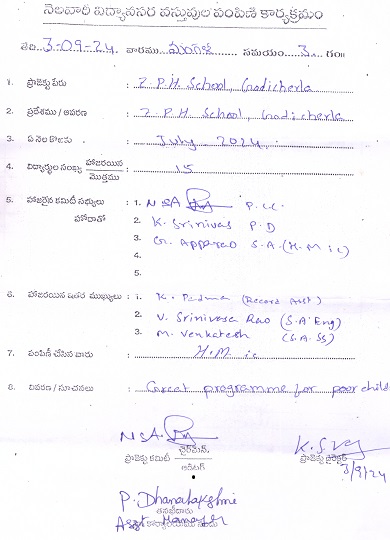 నెలవారి విద్యావసర వస్తువుల పంపిణీ కార్యక్రమం
తేది 3-09-24. వారము మంగళ సమయం 3 గం॥
1. ప్రాజెక్టు పేరు : Z.P.H School, Gadicherla
2. ప్రదేశము / ఆవరణ : Z.P.H. School, Gadicherla
3. ఏ నెల కొఱకు : July 2024,
4. విద్యార్థుల సంఖ్య హాజరయిన / మొత్తము : 15
5. హాజరైన కమిటీ సభ్యులు : 1. NSA P.CC.
హోదాతో 2. K. Srinivas P.D
3. G. Apparao S.A. (H.M i/c)
4.
5.
6. హాజరయిన ఇతర ముఖ్యులు : 1. K. Padma (Record Asst)
2. V. Srinivasa Rao (S.A Eng)
3. M. Venkatesh (S.A. SS)
7. పంపిణీ చేసిన వారు : H.M. i/c
8. వివరణ / సూచనలు : Great programme for poor child
NSA.
ప్రాజెక్టు కమిటీ చైర్‌మెన్ / ఆడిటర్
ప్రాజెక్టు డైరెక్టర్
3/9/24
P. Dhanalakshmi
Asst Manager